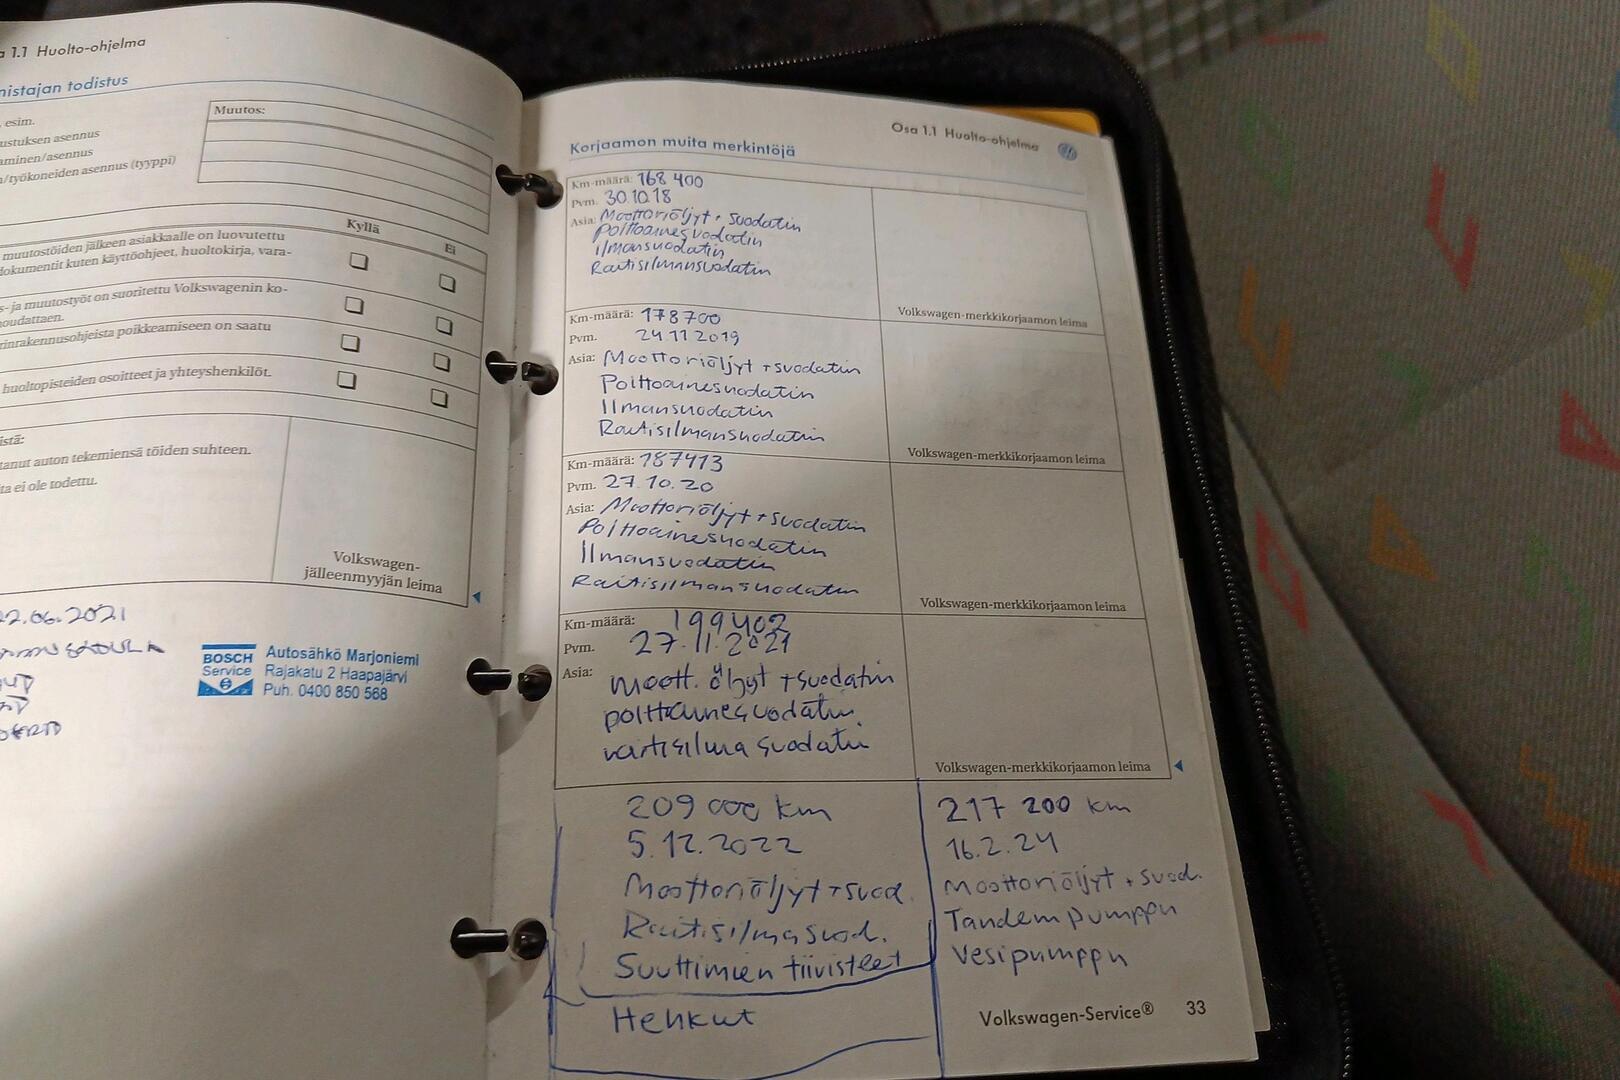 1.1 Huolto-ohjelma
nistajan todistus
, esim.
ustuksen asennus
aminen/asennus
/työkoneiden asennus (tyyppi)
Muutos:
Kyllä
Ei
muutostöiden jälkeen asiakkaalle on luovutettu
dokumentit kuten käyttöohjeet, huoltokirja, vara-
s- ja muutostyöt on suoritettu Volkswagenin ko-
oudattaen.
rinrakennusohjeista poikkeamiseen on saatu
huoltopisteiden osoitteet ja yhteyshenkilöt.
istä:
tanut auton tekemiensä töiden suhteen.
ta ei ole todettu.
Volkswagen-
jälleenmyyjän leima
22.06.2021
BOSCH
Service
Autosähkö Marjoniemi
Rajakatu 2 Haapajärvi
Puh. 0400 850 568
Osa 1.1 Huolto-ohjelma
Korjaamon muita merkintöjä
Km-määrä: 168 400
Pvm. 30.10.18
Asia: Moottoriöljyt + suodatin
Polttoainesuodatin
Ilmansuodatin
Raitisilmansuodatin
Volkswagen-merkkikorjaamon leima
Km-määrä: 178700
Pvm. 24.11.2019
Asia: Moottoriöljyt + suodatin
Polttoainesuodatin
Ilmansuodatin
Raitisilmansuodatin
Volkswagen-merkkikorjaamon leima
Km-määrä: 187413
Pvm. 27.10.20
Asia: Moottoriöljyt + suodatin
Polttoainesuodatin
Ilmansuodatin
Raitisilmansuodatin
Volkswagen-merkkikorjaamon leima
Km-määrä: 199402
Pvm. 27.11.2021
Asia: moott. öljyt + suodatin
polttoainesuodatin
raitisilmasuodatin
Volkswagen-merkkikorjaamon leima
209 000 km
5.12.2022
Moottoriöljyt + suod.
Raitisilmasuod.
Suuttimien tiivisteet
Hehkut
217 200 km
16.2.24
Moottoriöljyt + suod.
Tandempumppu
Vesipumppu
Volkswagen-Service® 33